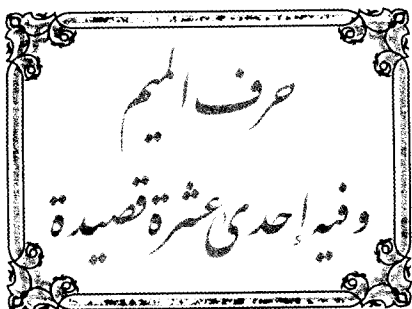 حرف الميم
وفيه إحدى عشرة قصيدة